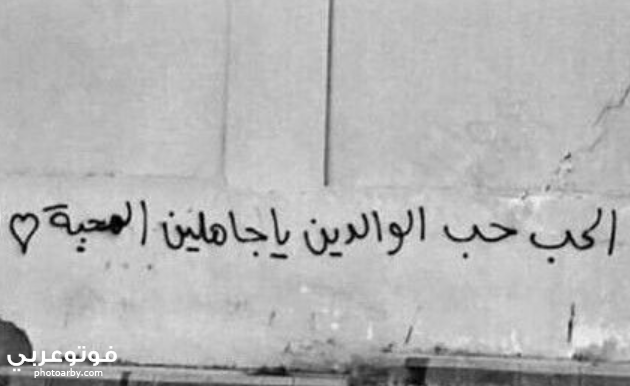 الحب حب الوالدين ياجاهلين المحبة ♡
فوتوعربي
photoarby.com